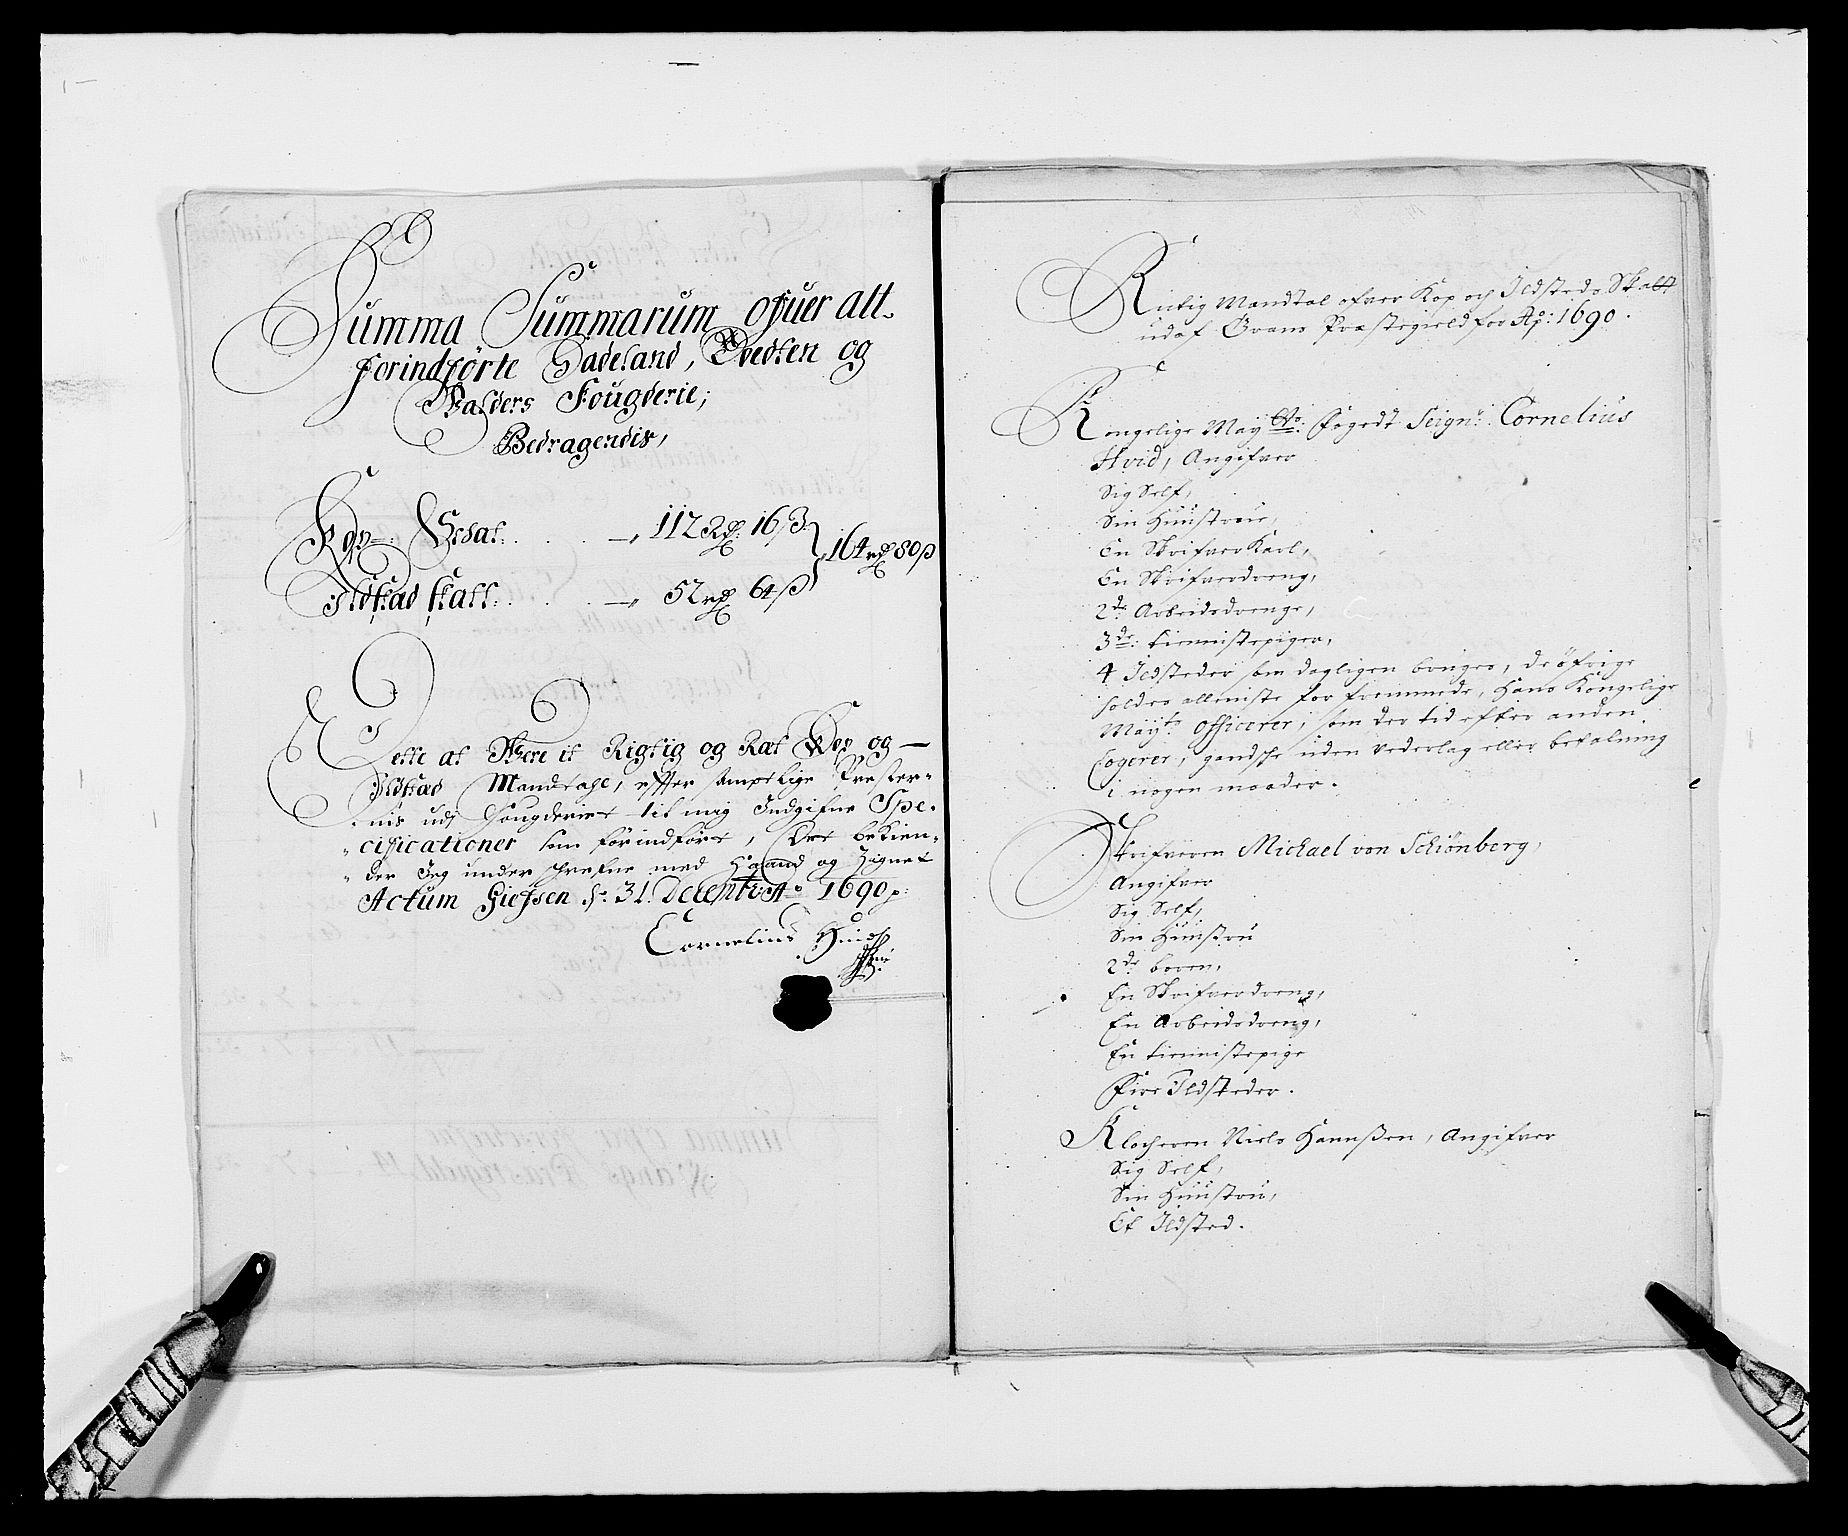 Summa Summarum ofuer alt
forindførte Hadeland, Toedten og
Valders Fougderie;
Bedragendis,
Kop-Schat. . . . . 112 Rd: 16 ß:
164 rd 80 ß
Ildstad skatt. . . . . 52 rd 64 ß
Dette at Were it Rigtig og Ræt Kop og
Ildstæd Mandtahl, effter samptlige Præster-
nis udj Fougderiet til mig Indgifne Spe-
cificationer som forindført, Det bekien-
der Jeg underschrefne med Haand og Zignet
Actum Giefsen d: 31. Decembr: Ao 1690
Cornelius Huid
Rictig Mandtal ofver Kop och Ildsteds Skatt
udaf Grans Præstegield for Ao: 1690.
Kongelige Mayttz: Fogedt Seignr: Cornelius
Hvid, Angifver
Sig Self,
Sin Hüustrue,
En Skrifver Karl,
En Skrifverdreng,
2de Arbeidsdrenge,
3de: tiennistepiger,
4 Ildsteder som dagligen bruges, de öfrige
holdes alleniste for fremmede, Hans Kongelige
Maytz Officerer, som der tid efter anden
Logerer, gandsche uden vederlag eller betalning
i nogen maader.
Skrifveren Michael von Schiönberg,
Angifver
Sig Self,
Sin Hüustru
2de börn,
En Skrifverdreng,
En Arbeidsdreng,
En tiennistepige
Fire Ildsteder.
Klocheren Niels Hannßen, Angifver
Sig Self,
Sin Hüustru,
Et Ildsted.